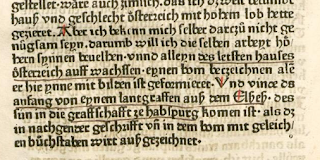 gestelter. wäre auch zimlich. das ich d̾z weit berůmbt
hauß vnd geschlecht österreich mit hohem lob hette
gezieret. Aber ich bekenn mich selber darzů nicht ge
nůgsam seyn. darumb will ich die selben arbeyt hö
hern synnen beuelhen. vnnd alleyn des letsten hauses
österreich auff wachssen. eynen bom bezeichnen als
er hie ynne mit bilden ist geformieret. Vnd vince da
anfang von eynem lantgraffen auß dem Elseß. des
sun in die graffschafft ze habspurg komen ist. als da
in nachgender geschrifft vn̄ in dem bom mit geleich
en bůchstaben wirt auff gezeichnet.